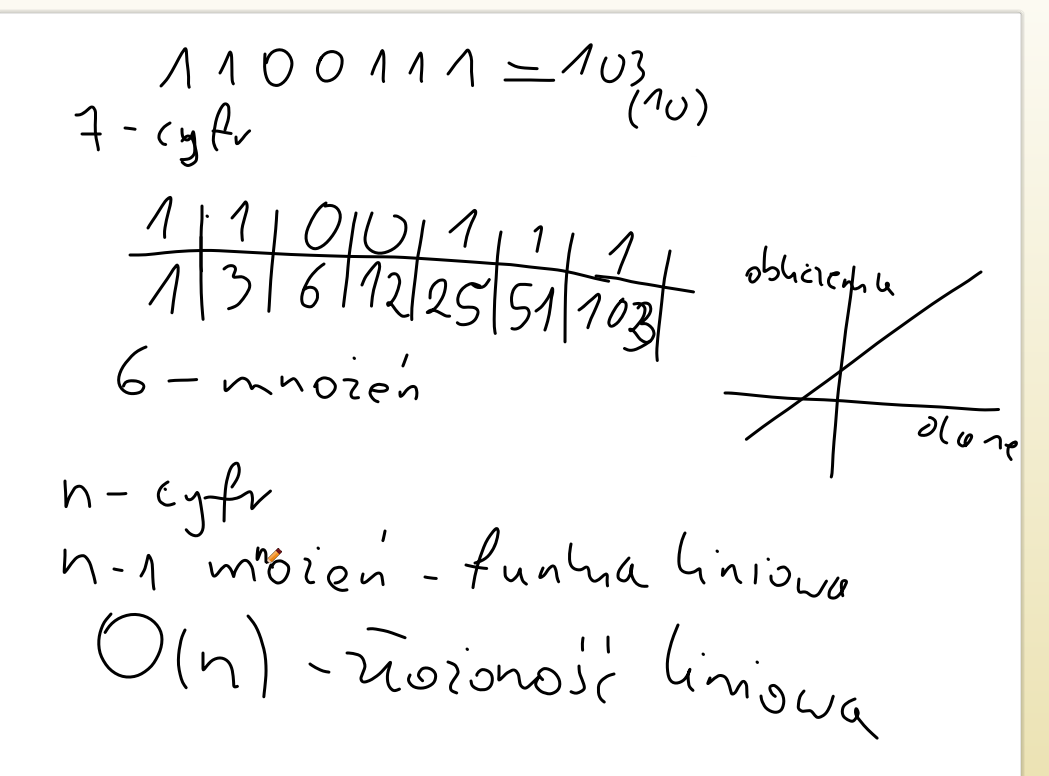 1100111 = 103
(10)
7 - cyfr
1 | 1 | 0 | 0 | 1 | 1 | 1 |
1 | 3 | 6 | 12 | 25 | 51 | 103 |
obliczenia
dane
6 - mnożeń
n - cyfr
n-1 mnożeń - funkcja liniowa
O(n) - złożoność liniowa